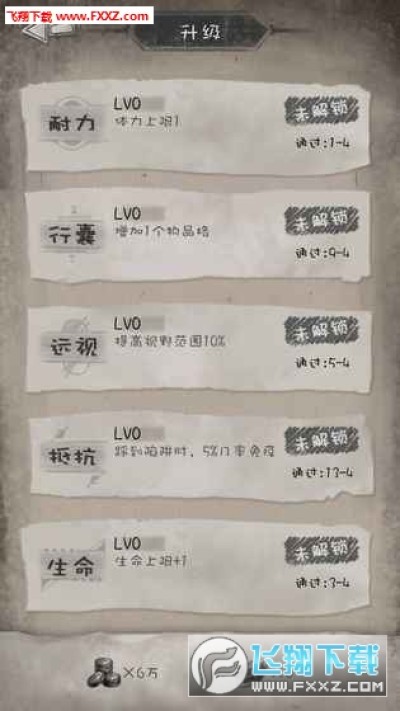 飞翔下载 www.fxxz.com
WWW.FXXZ.COM
升级
耐力
LV0
体力上限1
未解锁
通过:1-4
行囊
LV0
增加1个物品格
未解锁
通过:9-4
远视
LV0
提高视野范围10%
未解锁
通过:5-4
抵抗
LV0
踩到陷阱时，5%几率免疫
未解锁
通过:13-4
生命
LV0
生命上限+1
未解锁
通过:3-4
×6万
飞翔下载
WWW.FXXZ.COM